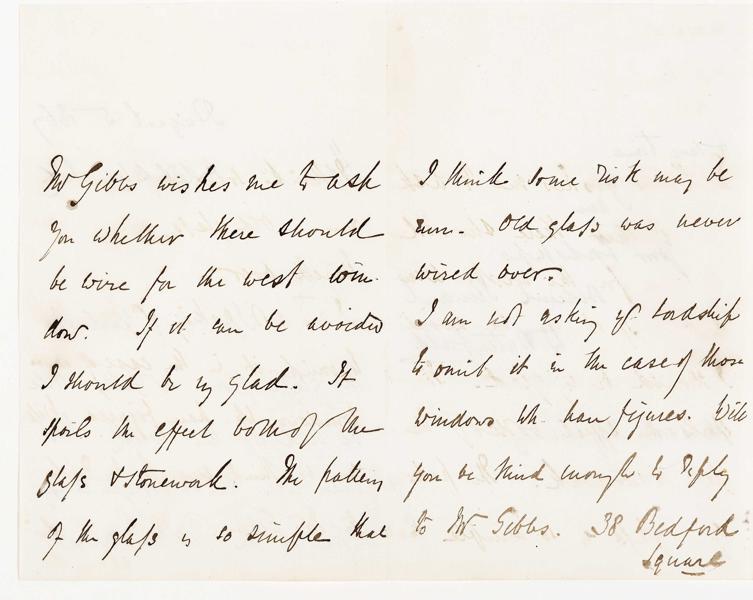 Mr Gibbs wishes me to ask
you whether there should
be wire for the west win-
dow. If it can be avoided
I should be vy glad. It
spoils the effect both of the
glass & stonework. The pattern
of the glass is so simple that
I think some risk may be
run. Old glass was never
wired over.
I am not asking yr Lordship
to omit it in the case of those
windows wh. have figures. Will
you be kind enough to reply
to Mr Gibbs. 38 Bedford
Square